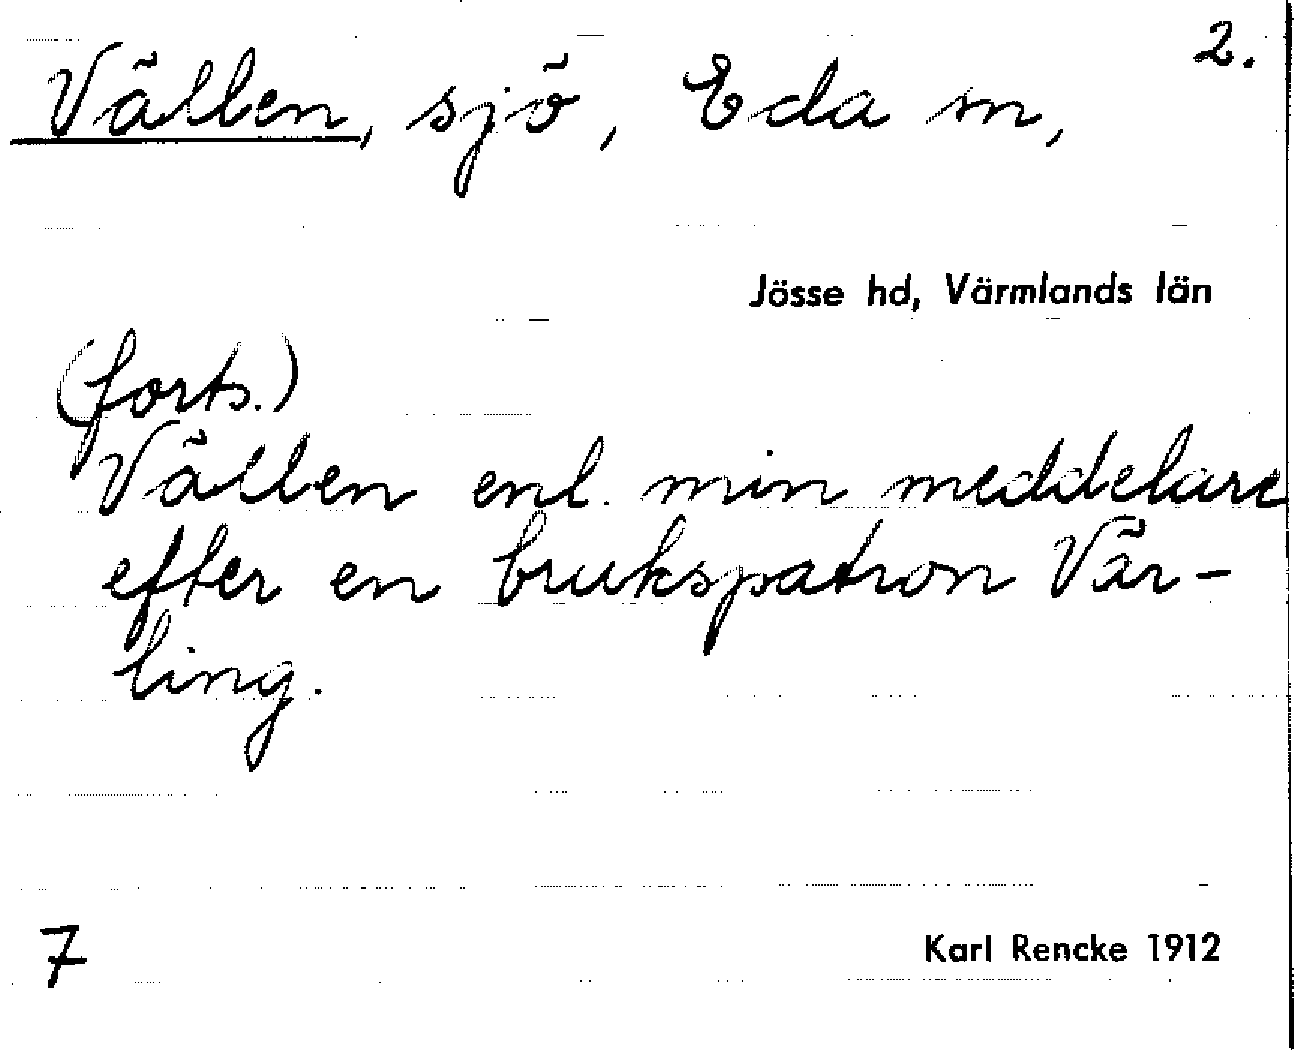 2.
Vällen, sjö, Eda sn,
Jösse hd, Värmlands län
(forts.)
Vällen enl. min meddelare
efter en brukspatron Vär-
ling.
7
Karl Rencke 1912